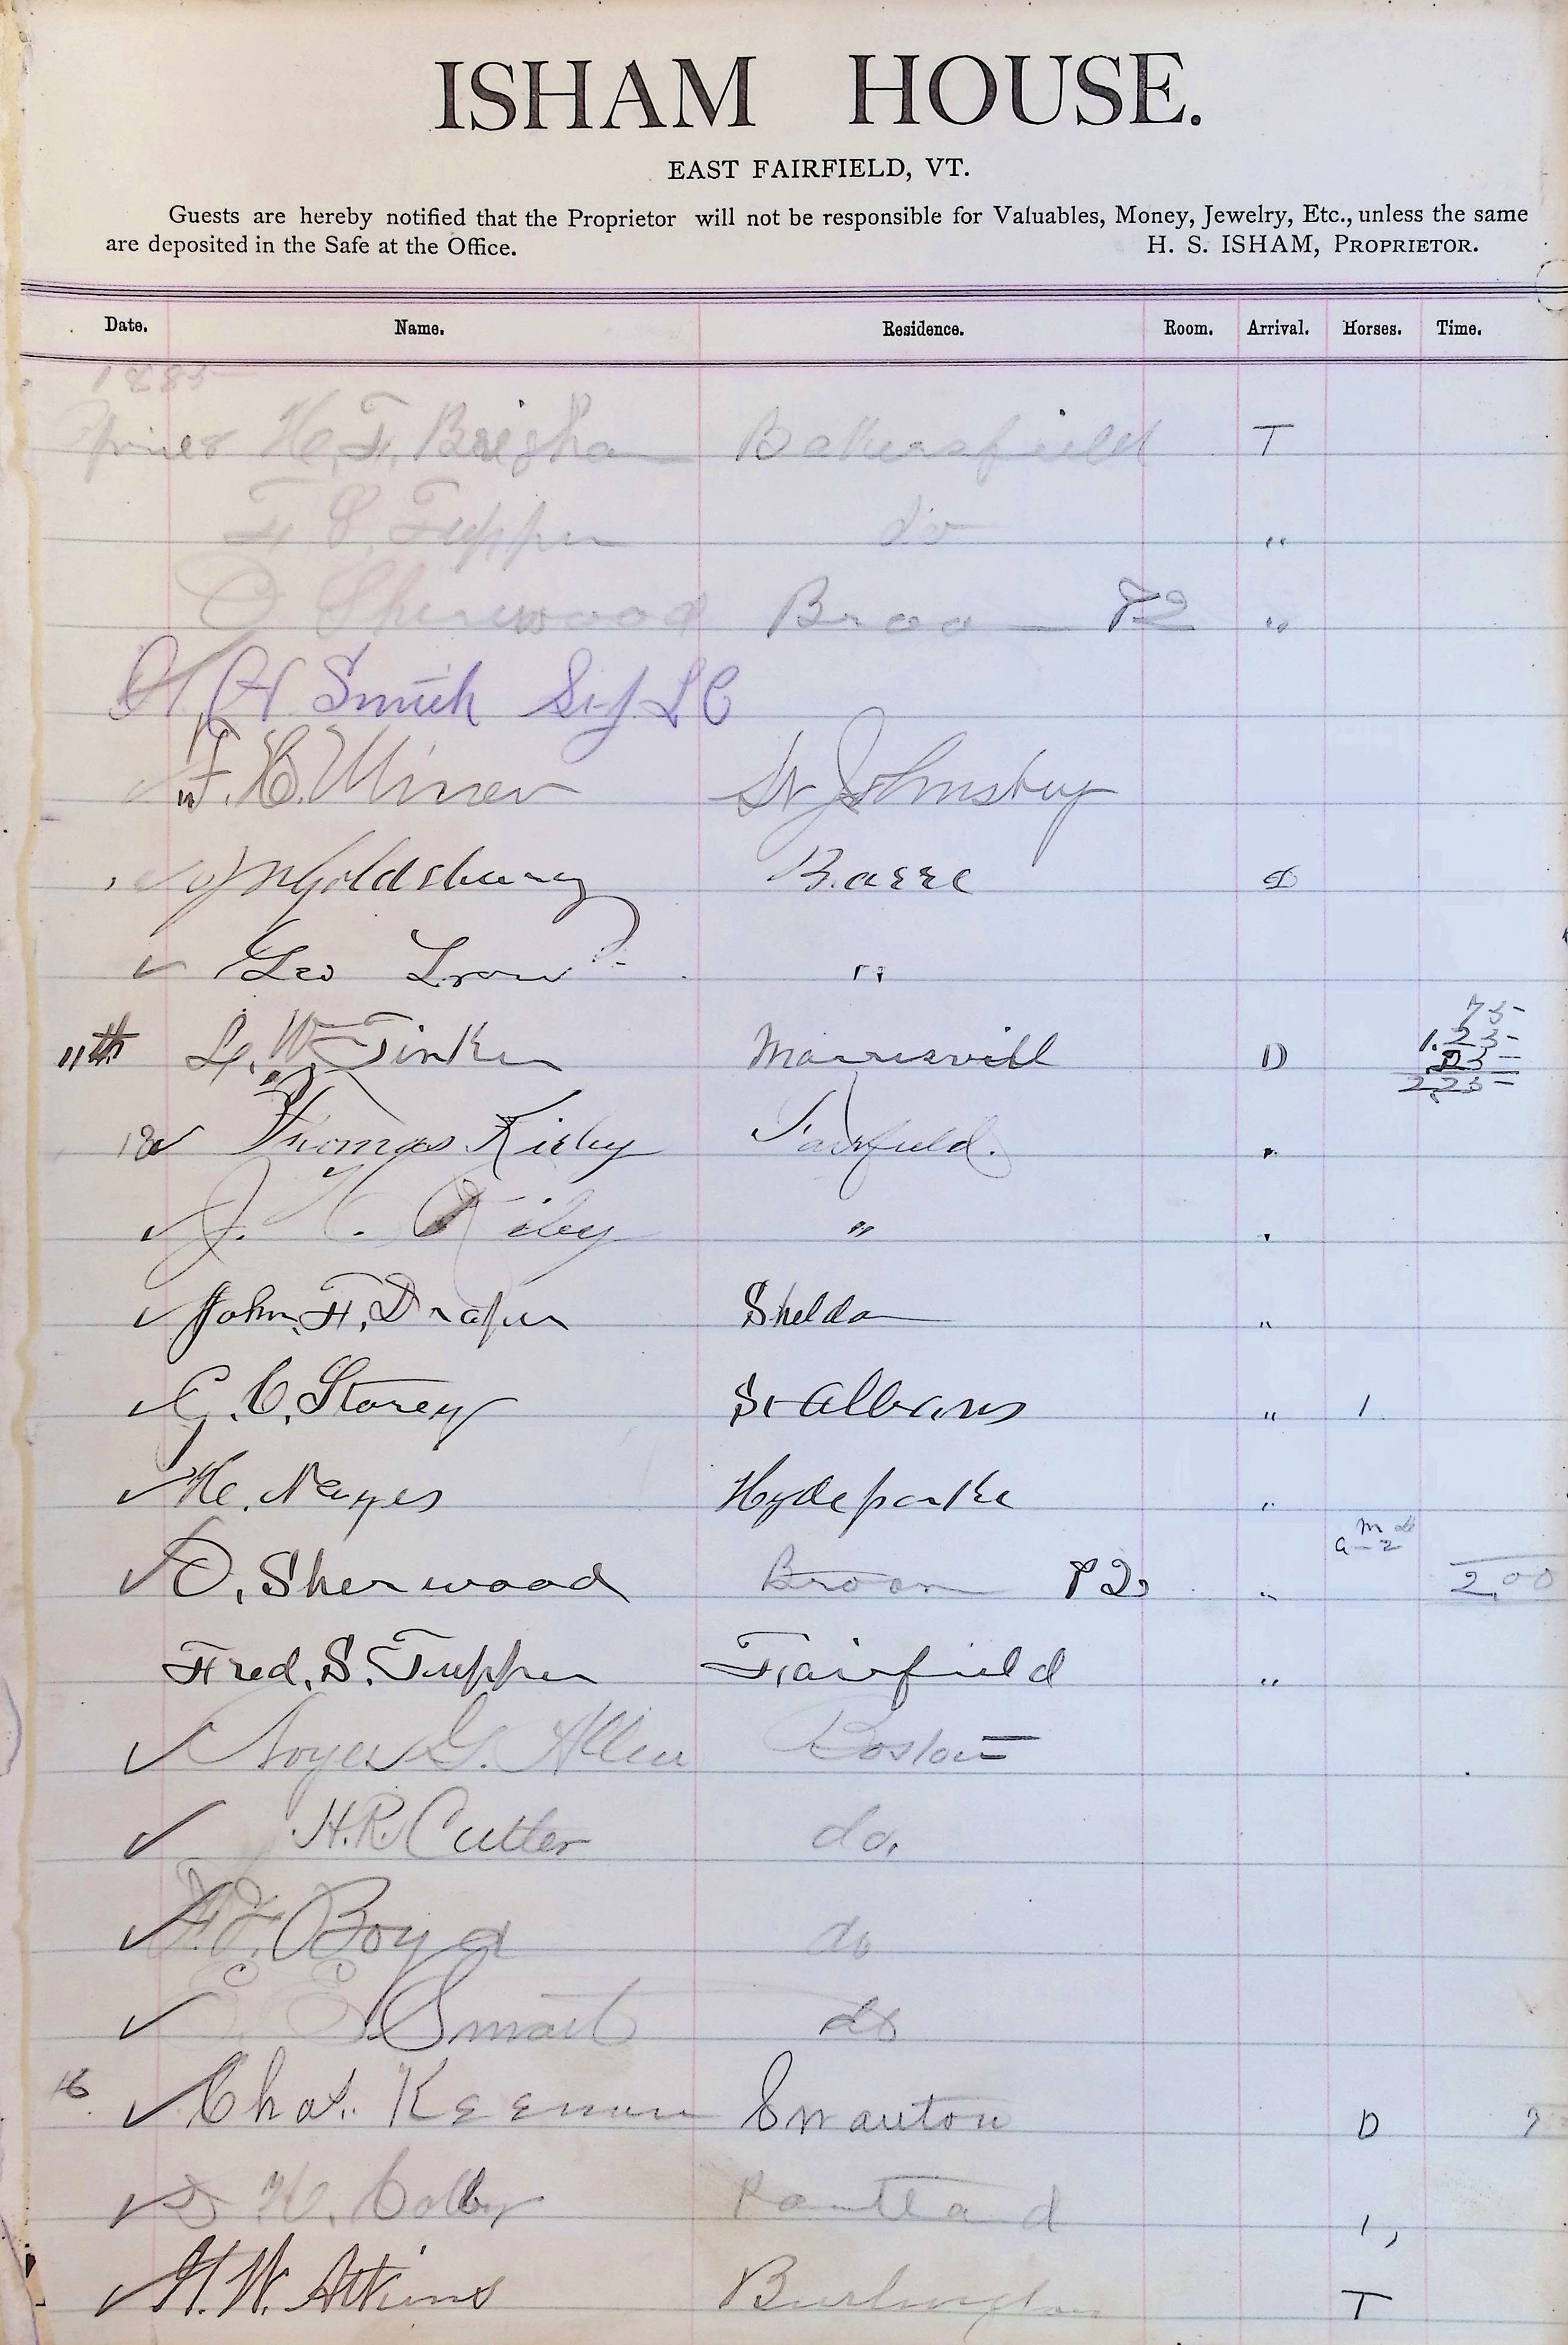 ISHAM HOUSE.
EAST FAIRFIELD, VT.
Guests are hereby notified that the Proprietor will not be responsible for Valuables, Money, Jewelry, Etc., unless the same
are deposited in the Safe at the Office. H. S. ISHAM, PROPRIETOR.
Date. Name. Residence. Room. Arrival. Horses. Time.
1885
H. F. Brigham Bakersfield T
F S. Tupper do "
O Sherwood Broom P2 "
Smith
F. H. Miner St Johnsbury
Goldsbury Barre D
Geo Trow "
75
1.25
11th L. W. Tinker Morrisvill D 25
2.25
Thomas Kirby Fairfield. "
J. H. Kirby " "
John, F, Draper Sheldon "
G. C. Storey St Albans " 1
H. Noyes Hydeparke "
O. Sherwood Broom P2 " 2.00
Fred. S. Tupper Fairfield "
Noyes G. Allen Boston
H. R. Cutler do.
Boyd do
E. E. Smart do
16 Chas. Keenan Swanton D
H. Colby 1,
H. W. Atkins Burlington T